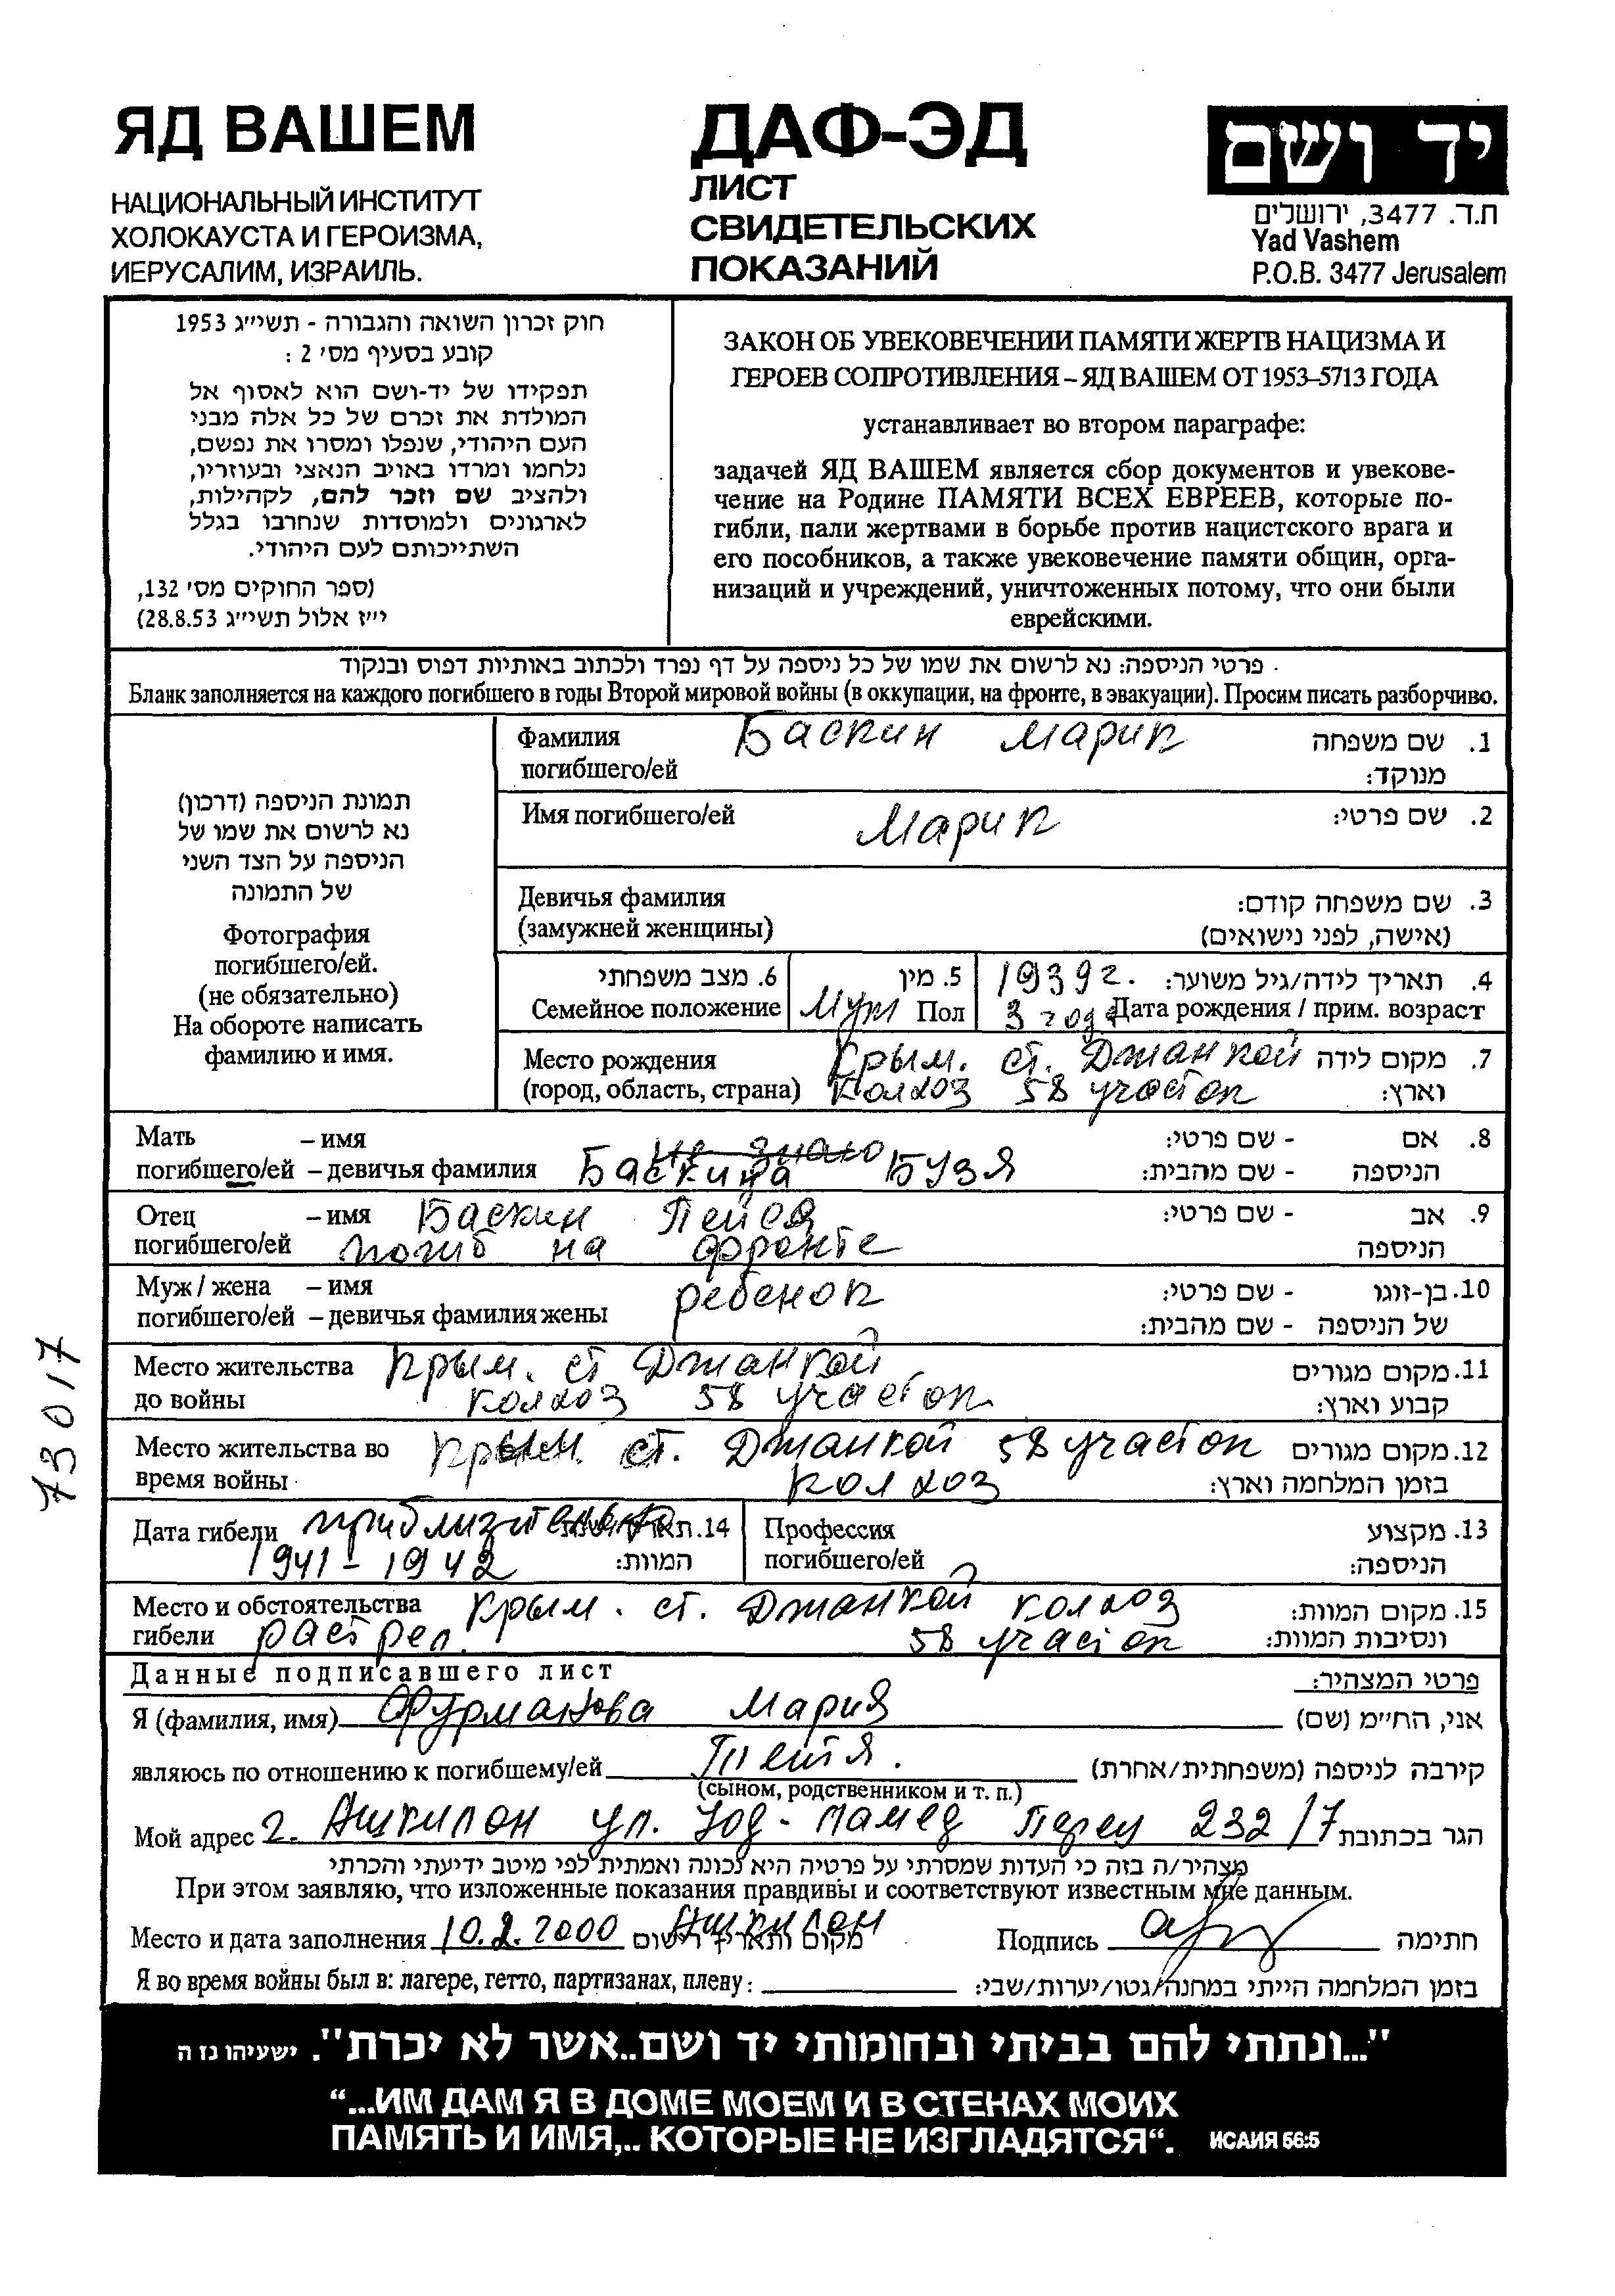 ЯД ВАШЕМ
НАЦИОНАЛЬНЫЙ ИНСТИТУТ
ХОЛОКАУСТА И ГЕРОИЗМА,
ИЕРУСАЛИМ, ИЗРАИЛЬ.
ДАФ-ЭД
ЛИСТ
СВИДЕТЕЛЬСКИХ
ПОКАЗАНИЙ
יד ושם
ת.ד. 3477, ירושלים
Yad Vashem
P.O.B. 3477 Jerusalem
חוק זכרון השואה והגבורה - תשי״ג 1953
קובע בסעיף מס׳ 2 :
תפקידו של יד-ושם הוא לאסוף אל
המולדת את זכרם של כל אלה מבני
העם היהודי, שנפלו ומסרו את נפשם,
נלחמו ומרדו באויב הנאצי ובעוזריו,
ולהציב שם וזכר להם, לקהילות,
לארגונים ולמוסדות שנחרבו בגלל
השתייכותם לעם היהודי.
(ספר החוקים מס׳ 132,
י״ז אלול תשי״ג 28.8.53)
ЗАКОН ОБ УВЕКОВЕЧЕНИИ ПАМЯТИ ЖЕРТВ НАЦИЗМА И
ГЕРОЕВ СОПРОТИВЛЕНИЯ – ЯД ВАШЕМ ОТ 1953–5713 ГОДА
устанавливает во втором параграфе:
задачей ЯД ВАШЕМ является сбор документов и увекове-
чение на Родине ПАМЯТИ ВСЕХ ЕВРЕЕВ, которые по-
гибли, пали жертвами в борьбе против нацистского врага и
его пособников, а также увековечение памяти общин, орга-
низаций и учреждений, уничтоженных потому, что они были
еврейскими.
פרטי הניספה: נא לרשום את שמו של כל ניספה על דף נפרד ולכתוב באותיות דפוס ובנקוד
Бланк заполняется на каждого погибшего в годы Второй мировой войны (в оккупации, на фронте, в эвакуации). Просим писать разборчиво.
תמונת הניספה (דרכון)
נא לרשום את שמו של
הניספה על הצד השני
של התמונה
Фотография
погибшего/ей.
(не обязательно)
На обороте написать
фамилию и имя.
Фамилия Баскин Марик 1. שם משפחה
погибшего/ей מנוקד:
Имя погибшего/ей Марик 2. שם פרטי:
Девичья фамилия 3. שם משפחה קודם:
(замужней женщины) (אישה, לפני נישואים)
6. מצב משפחתי 5. מין 1939г. 4. תאריך לידה/גיל משוער:
Семейное положение Муж Пол 3 года Дата рождения / прим. возраст
Место рождения Крым. ст. Джанкой 7. מקום לידה
(город, область, страна) колхоз 58 участок וארץ:
Мать – имя не знаю 8. אם - שם פרטי:
погибшего/ей – девичья фамилия Баскина Бузя הניספה - שם מהבית:
Отец – имя Баскин Пейся 9. אב - שם פרטי:
погибшего/ей погиб на фронте הניספה
Муж / жена – имя ребенок 10. בן-זוגו - שם פרטי:
погибшего/ей – девичья фамилия жены של הניספה - שם מהבית:
Место жительства Крым. ст Джанкой 11. מקום מגורים
до войны колхоз 58 участок קבוע וארץ:
Место жительства во Крым. ст. Джанкой 58 участок 12. מקום מגורים
время войны колхоз בזמן המלחמה וארץ:
Дата гибели приблизительно 14. Профессия 13. מקצוע
1941 – 1942 המוות: погибшего/ей הניספה:
Место и обстоятельства Крым. ст. Джанкой колхоз 15. מקום המוות:
гибели растрел. 58 участок ונסיבות המוות:
Данные подписавшего лист פרטי המצהיר:
Я (фамилия, имя) Фурманова Мария אני, החי״מ (שם)
являюсь по отношению к погибшему/ей Тётя. קירבה לניספה (משפחתית/אחרת)
(сыном, родственником и т. п.)
Мой адрес г. Ашкилон ул. Юд-Ламед Перец 232/7 הגר בכתובת
מצהיר/ה בזה כי העדות שמסרתי על פרטיה היא נכונה ואמתית לפי מיטב ידיעתי והכרתי
При этом заявляю, что изложенные показания правдивы и соответствуют известным мне данным.
Место и дата заполнения 10.2.2000 Ашкилон מקום ותאריך רישום Подпись חתימה
Я во время войны был в: лагере, гетто, партизанах, плену: בזמן המלחמה הייתי במחנה/גטו/יערות/שבי:
"...ונתתי להם בביתי ובחומותי יד ושם..אשר לא יכרת". ישעיהו נז ה
“...ИМ ДАМ Я В ДОМЕ МОЕМ И В СТЕНАХ МОИХ
ПАМЯТЬ И ИМЯ,.. КОТОРЫЕ НЕ ИЗГЛАДЯТСЯ“. ИСАИЯ 56:5
73017